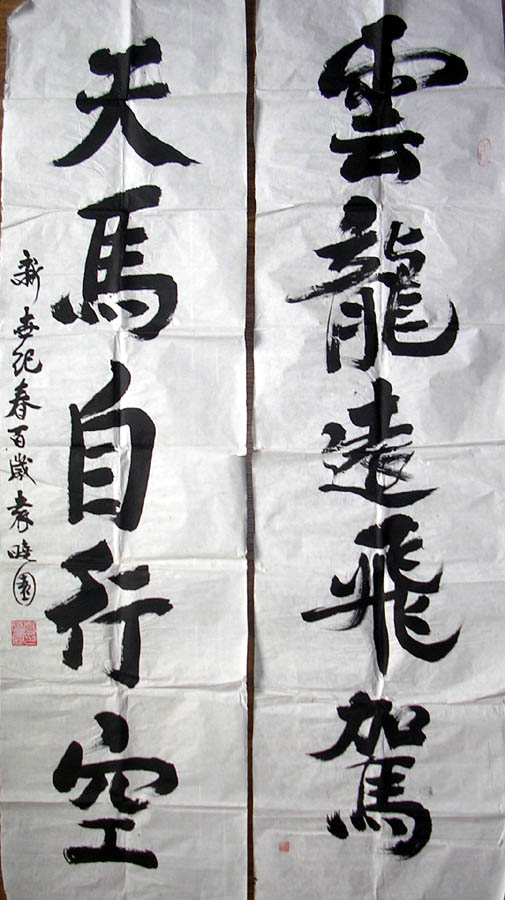 雲龍遠飛駕
天馬自行空
新世紀春百歲袁曉園